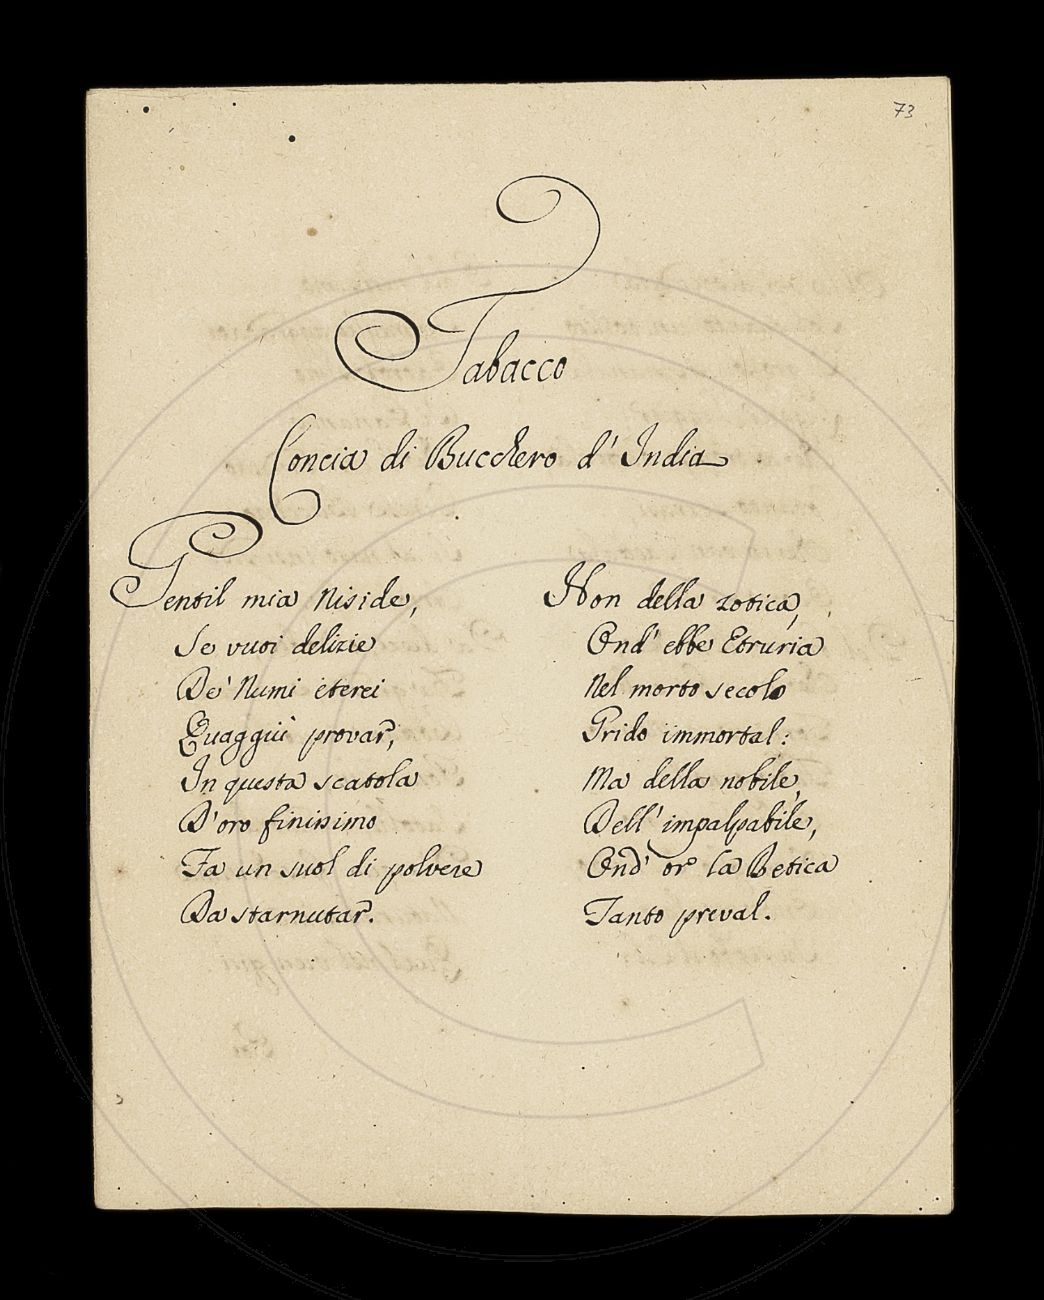 73
Tabacco
Concia di Bucchero d'India
Gentil mia Niside,
Se vuoi delizie
De' Numi eterei
Quaggiù provar,
In questa scatola
D'oro finissimo
Fa un suol di polvere
Da starnutar.
Non della zotica,
Ond' ebbe Etruria
Nel morto secolo
Grido immortal:
Ma della nobile,
Dell' impalpabile,
Ond' or la Betica
Tanto preval.